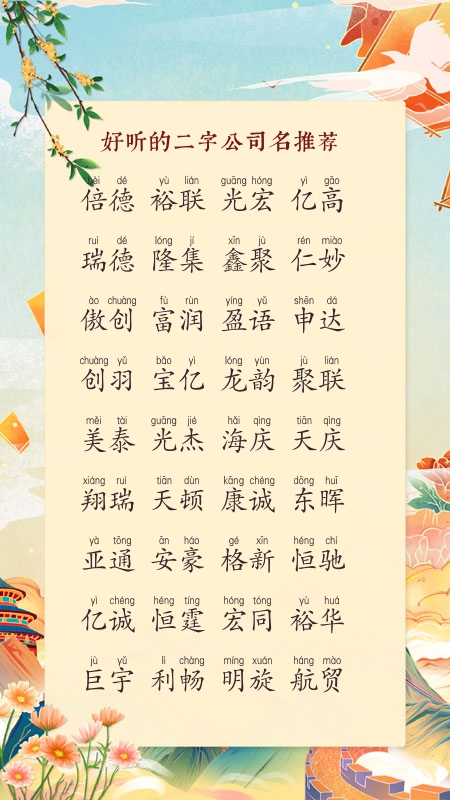 好听的二字公司名推荐
bèi dé yù lián guāng hóng yì gāo
倍德 裕联 光宏 亿高
ruì dé lóng jí xīn jù rén miào
瑞德 隆集 鑫聚 仁妙
ào chuàng fù rùn yíng yǔ shēn dá
傲创 富润 盈语 申达
chuàng yǔ bǎo yì lóng yùn jù lián
创羽 宝亿 龙韵 聚联
měi tài guāng jié hǎi qìng tiān qìng
美泰 光杰 海庆 天庆
xiáng ruì tiān dùn kāng chéng dōng huī
翔瑞 天顿 康诚 东晖
yà tōng ān háo gé xīn héng chí
亚通 安豪 格新 恒驰
yì chéng héng tíng hóng tóng yù huá
亿诚 恒霆 宏同 裕华
jù yǔ lì chàng míng xuán háng mào
巨宇 利畅 明旋 航贸